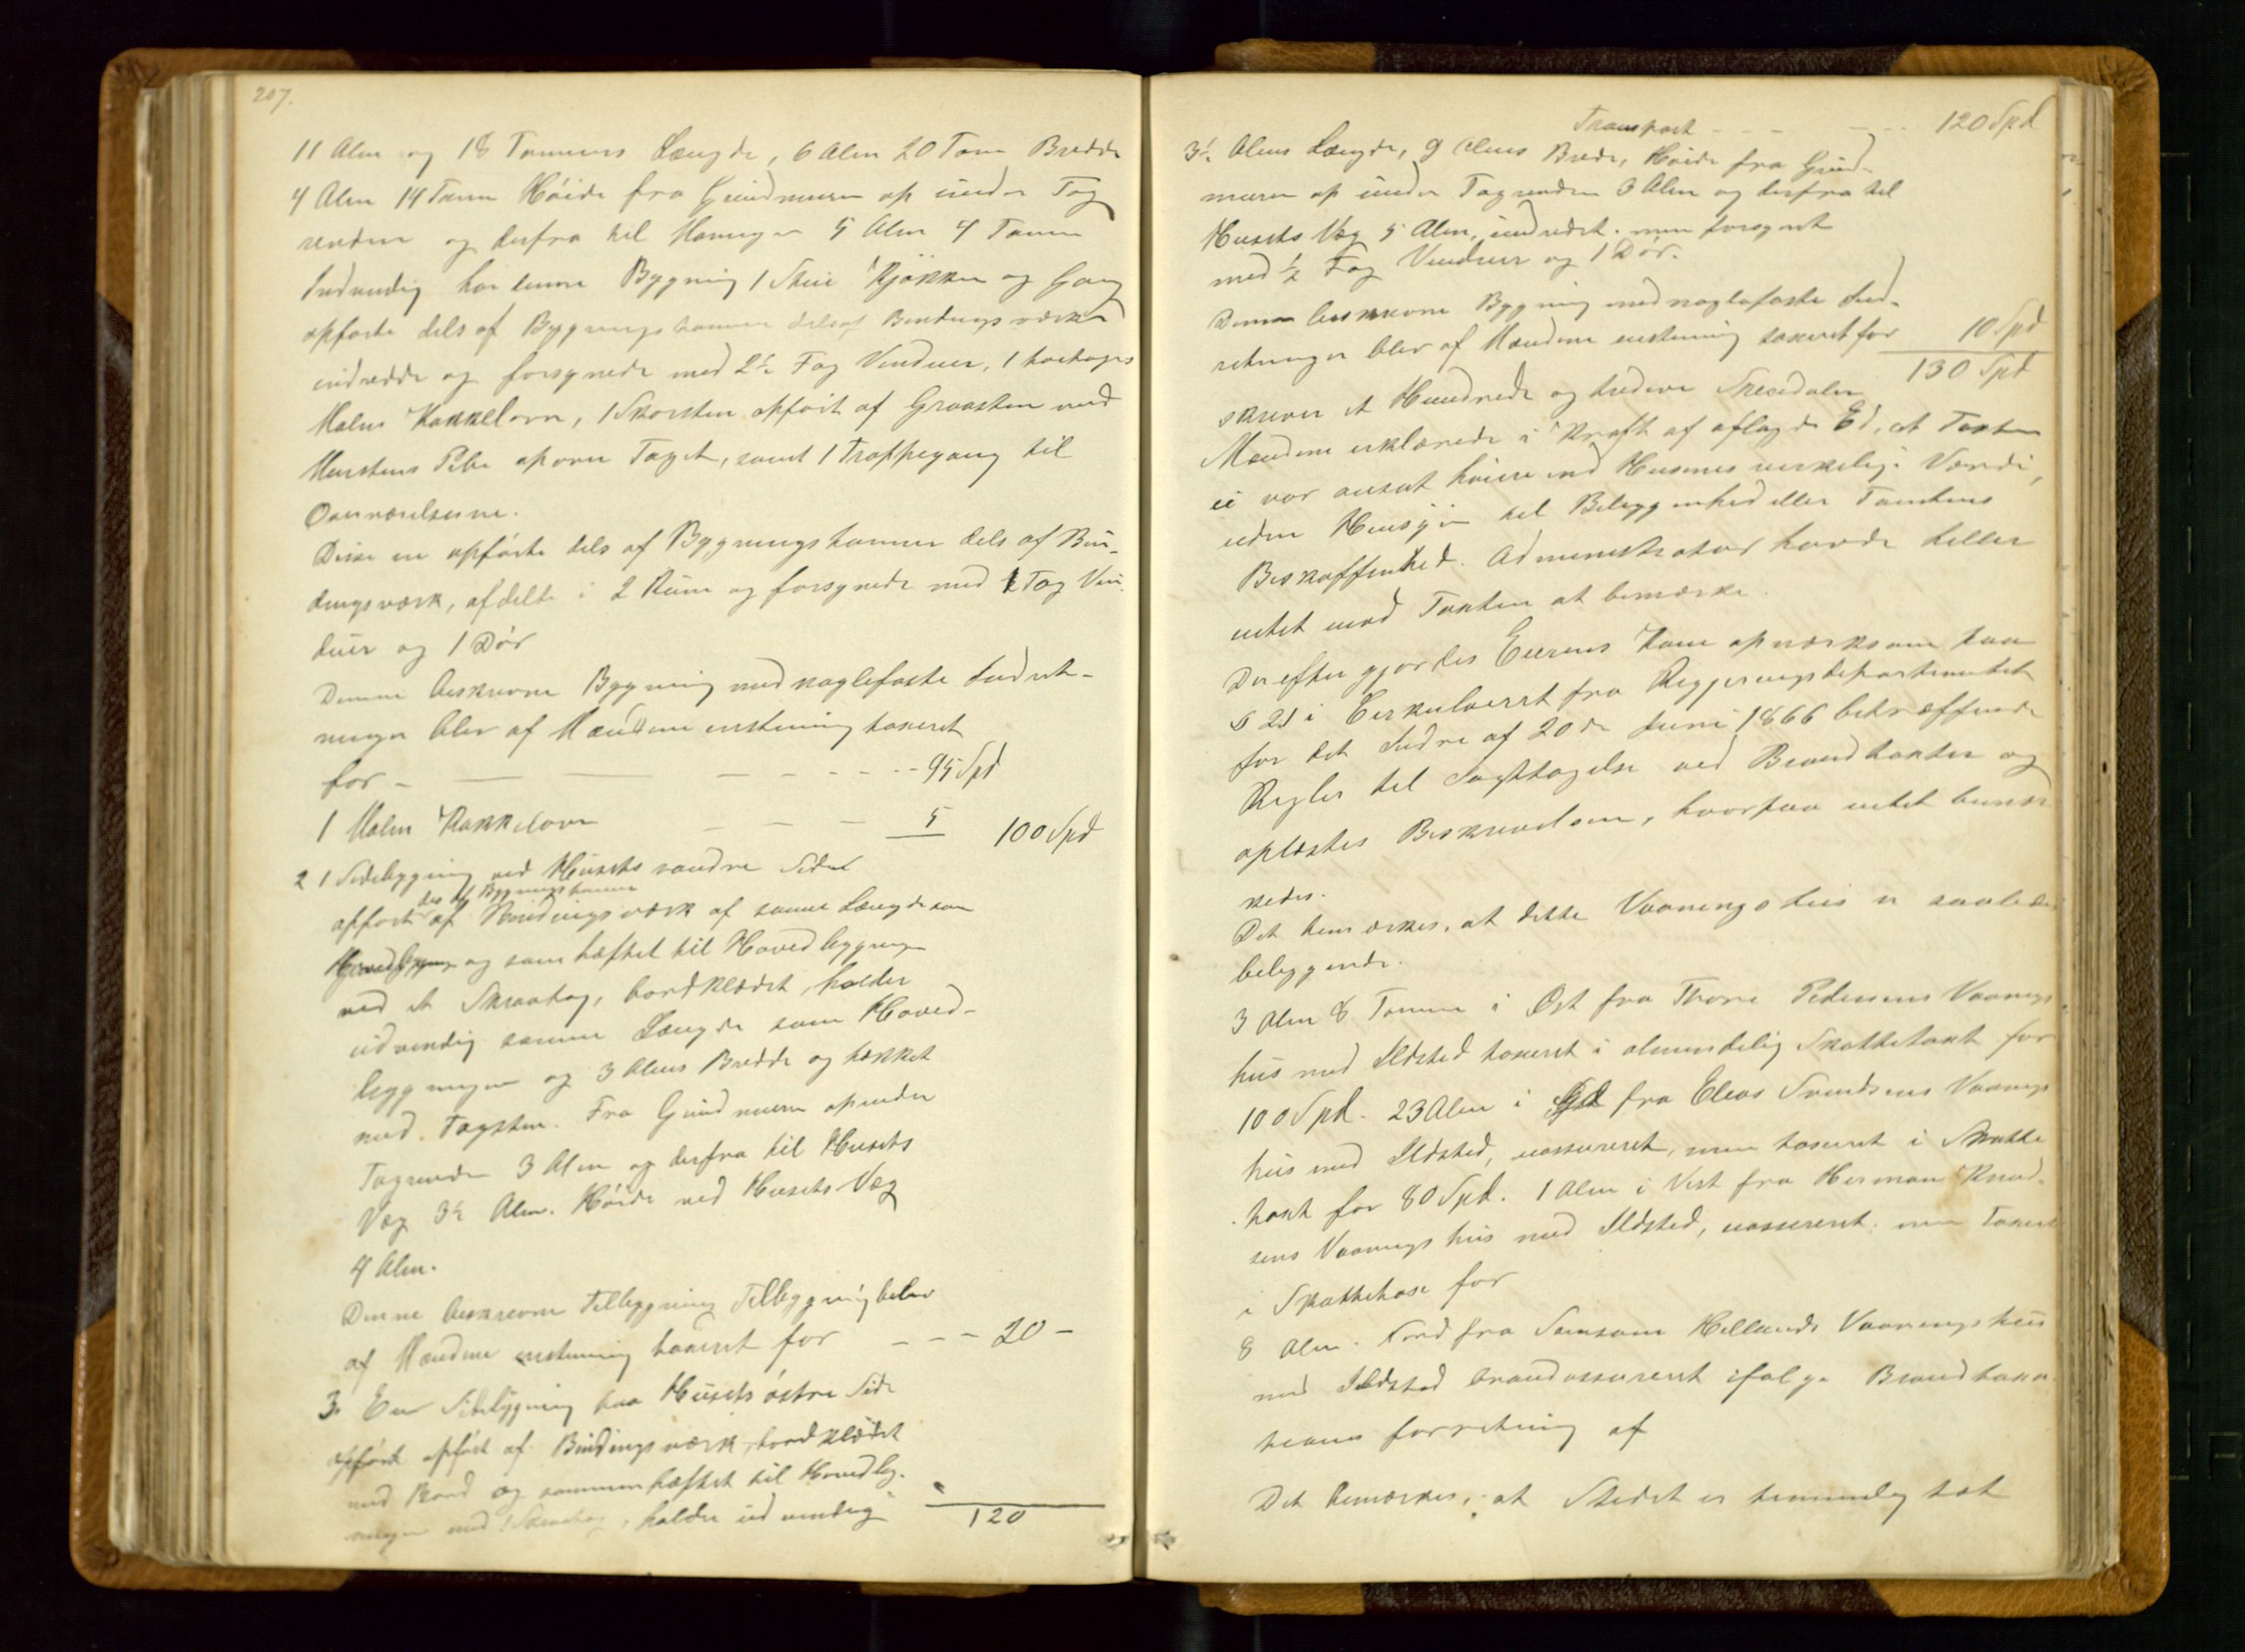 207.
11 Alen og 18 Tommers Længde, 6 Alen 20 Tom Bredde
4 Alen 14 Tomm Høide fra Grundmuren op under Tag
renden og derfra til Mønnigen 5 Alen 4 Tomm
Indvendig har denne Bygning 1 Stue 1 Kjøkken og Gang
opførte dels af Bygningstømmer dels af Bindingsværk
indredde og forsynede med 2½ Fag Vinduer, 1 toetages
Malm Kakkelovn, 1 Skorsten opført af Graasten med
Murstens Pibe opover Taget, samt 1 Trappegang til
Overværelserne.
Disse er opførte dels af Bygningstømmer dels af Bin-
dingsværk, afdelte i 2 Rum og forsynede med 1 Fag Vin-
duer og 1 Dør
Denne beskrevne Bygning med naglefaste Indret-
ninger blev af Mændene enstemmig taxeret
for - - - - - 95 Spd
1 Malm Kakkelovn - - - 5 100 Spd
2 1 Sidebygning ved Husets søndre Side
dels af Bygningstømmer
opført af Bindingsværk af samme Længde som
Hovedbygning og sam hæftet til Hovedbygningen
ved et Skraatag, bordklædet, holder
udvendig samme Længde som Hoved-
bygningen og 3 Alens Bredde og tækket
med Tagsten. Fra Grundmuren op under
Tagrenden 3 Alen og derfra til Husets
Væg 3½ Alen. Høide ved Husets Væg
4 Alen.
Denne beskrevne Tilbygning Tilbygning blev
af Mændene enstemmig taxeret for - - - 20 -
3. En Sidebygning paa Husets østre Side
opført opført af Bindingsværk, bordklædet
med Bord og sammenhæftet til Hovedbyg-
ningen med 1 Skraatag, holder udvendig
120
Transport - - - - 120 Spd
3½ Alens Længde, 9 Alens Brede, Høide fra Grund-
muren op under Tagrenden 3 Alen og derfra til
Husets Væg 5 Alen, uindredet. men forsynet
med ½ Fag Vinduer og 1 Dør.
Denne beskrevne Bygning med naglefaste Ind-
retninger blev af Mændene enstemmig taxeret for 10 Spd
130 Spd
skriver et Hundrede og tredeve Speciedaler
Mændene erklærede i Kraft af aflagde Ed, at Taxten
ei var ansat høiere end Husenes virkelige Værdi,
uden Hensyn til Beliggenhed eller Tomtens
Beskaffenhed. Administrator havde heller
intet mod Taxten at bemærke.
Derefter gjordes Eierens Kone opmærksom paa
§ 21 i Cirkulæret fra Regjeringsdepartementet
for det Indre af 20de Juni 1866 betræffende
Regler til Iagttagelse ved Brandtaxter og
oplæstes Beskrivelsen, hvorpaa intet bemær-
kedes.
Det bemærkes, at dette Vaaningshus er saaledes
beliggende.
3 Alen 8 Tomme i Øst fra Thore Pedersens Vaanings
hus med Ildsted taxeret i almindelig Skattetaxt for
100 Spd. 23 Alen i Syd fra Elias Svendsens Vaanings
hus med Ildsted, uassureret, men taxeret i Skatte
taxt for 80 Spd. 1 Alen i Vest fra Herman Knud-
sens Vaanings hus med Ildsted, uassureret, men Taxeret
i Skattetaxt for
8 Alen i Nord fra Samsom Hellands Vaaningshus
med Ildsted brandassureret ifølge Brandtaxa
tions forretning af
Det bemærkes, at Stedet er temmelig tæt